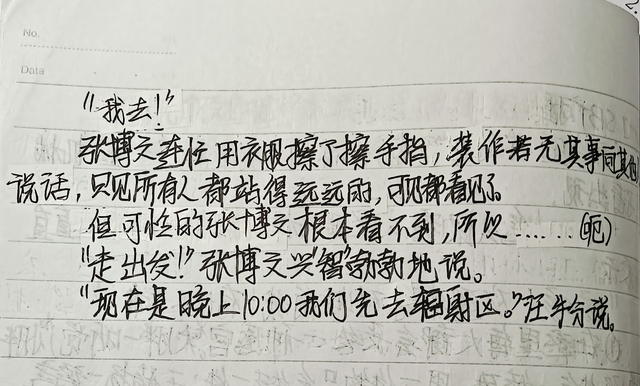 2.
No.
Data
"我去!"
张博文连忙用衣服擦了擦手指,装作若无其事同其他
说话,只见所有人都站得远远的,可见都看见了
但可怜的张博文根本看不到,所以......(呃)
"走出发!"张博文兴"智"勃勃地说。
"现在是晚上10:00我们先去辐射区。"汪牛分说。